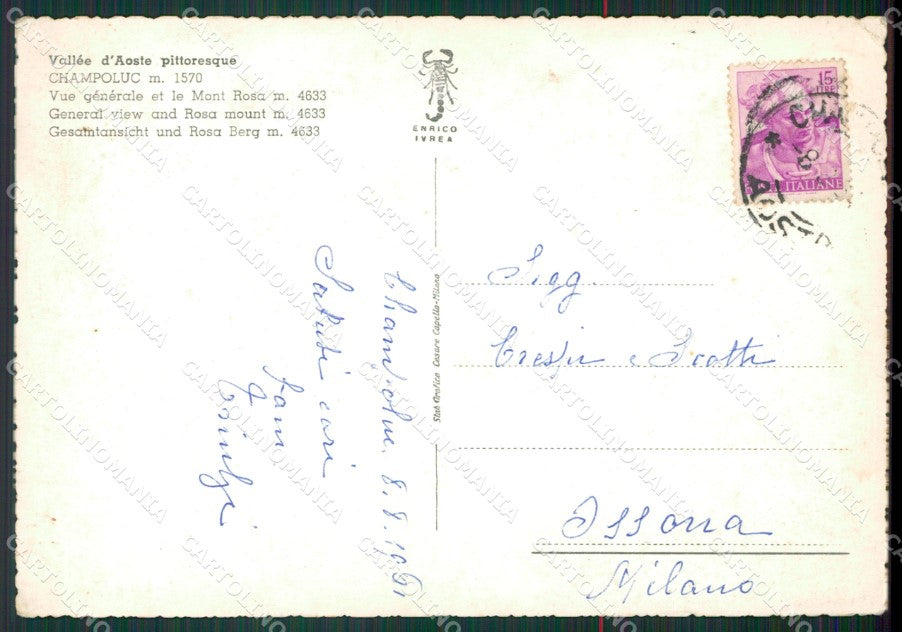 Vallée d'Aoste pittoresque
CHAMPOLUC m. 1570
Vue générale et le Mont Rosa m. 4633
General view and Rosa mount m. 4633
Gesamtansicht und Rosa Berg m. 4633
ENRICO
IVREA
15
LIRE
ITALIANE
CHA
8
AOSTA
Stab Grafico Cesare Capello-Milano
Champoluc. 8.8.1961
Saluti cari
fam
Sigg.
Crespi e Scotti
Ossona
Milano
CARTOLINOMANIA